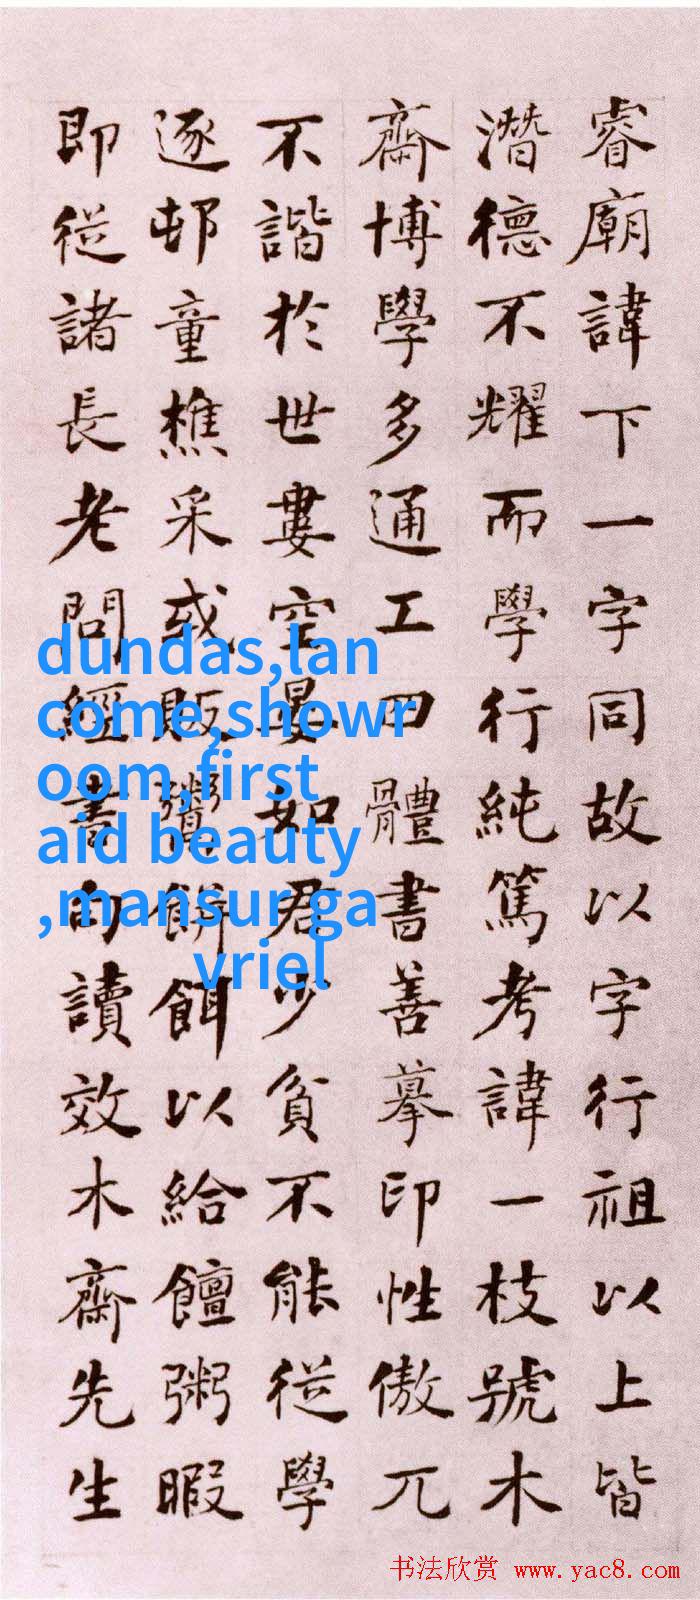 睿廟諱下一字同故以字行祖以上皆
潛德不耀而學行純篤考諱一枝號木
齋博學多通工四體書善摹印性傲兀
不諧於世婁空晏如君少貧不能從學
逐邨童樵采或販鬻餅餌以給饘粥暇
即從諸長老問經書句讀效木齋先生
dundas,lan
come,showr
oom,first
aid beauty
,mansur ga
vriel
书法欣赏 www.yac8.com